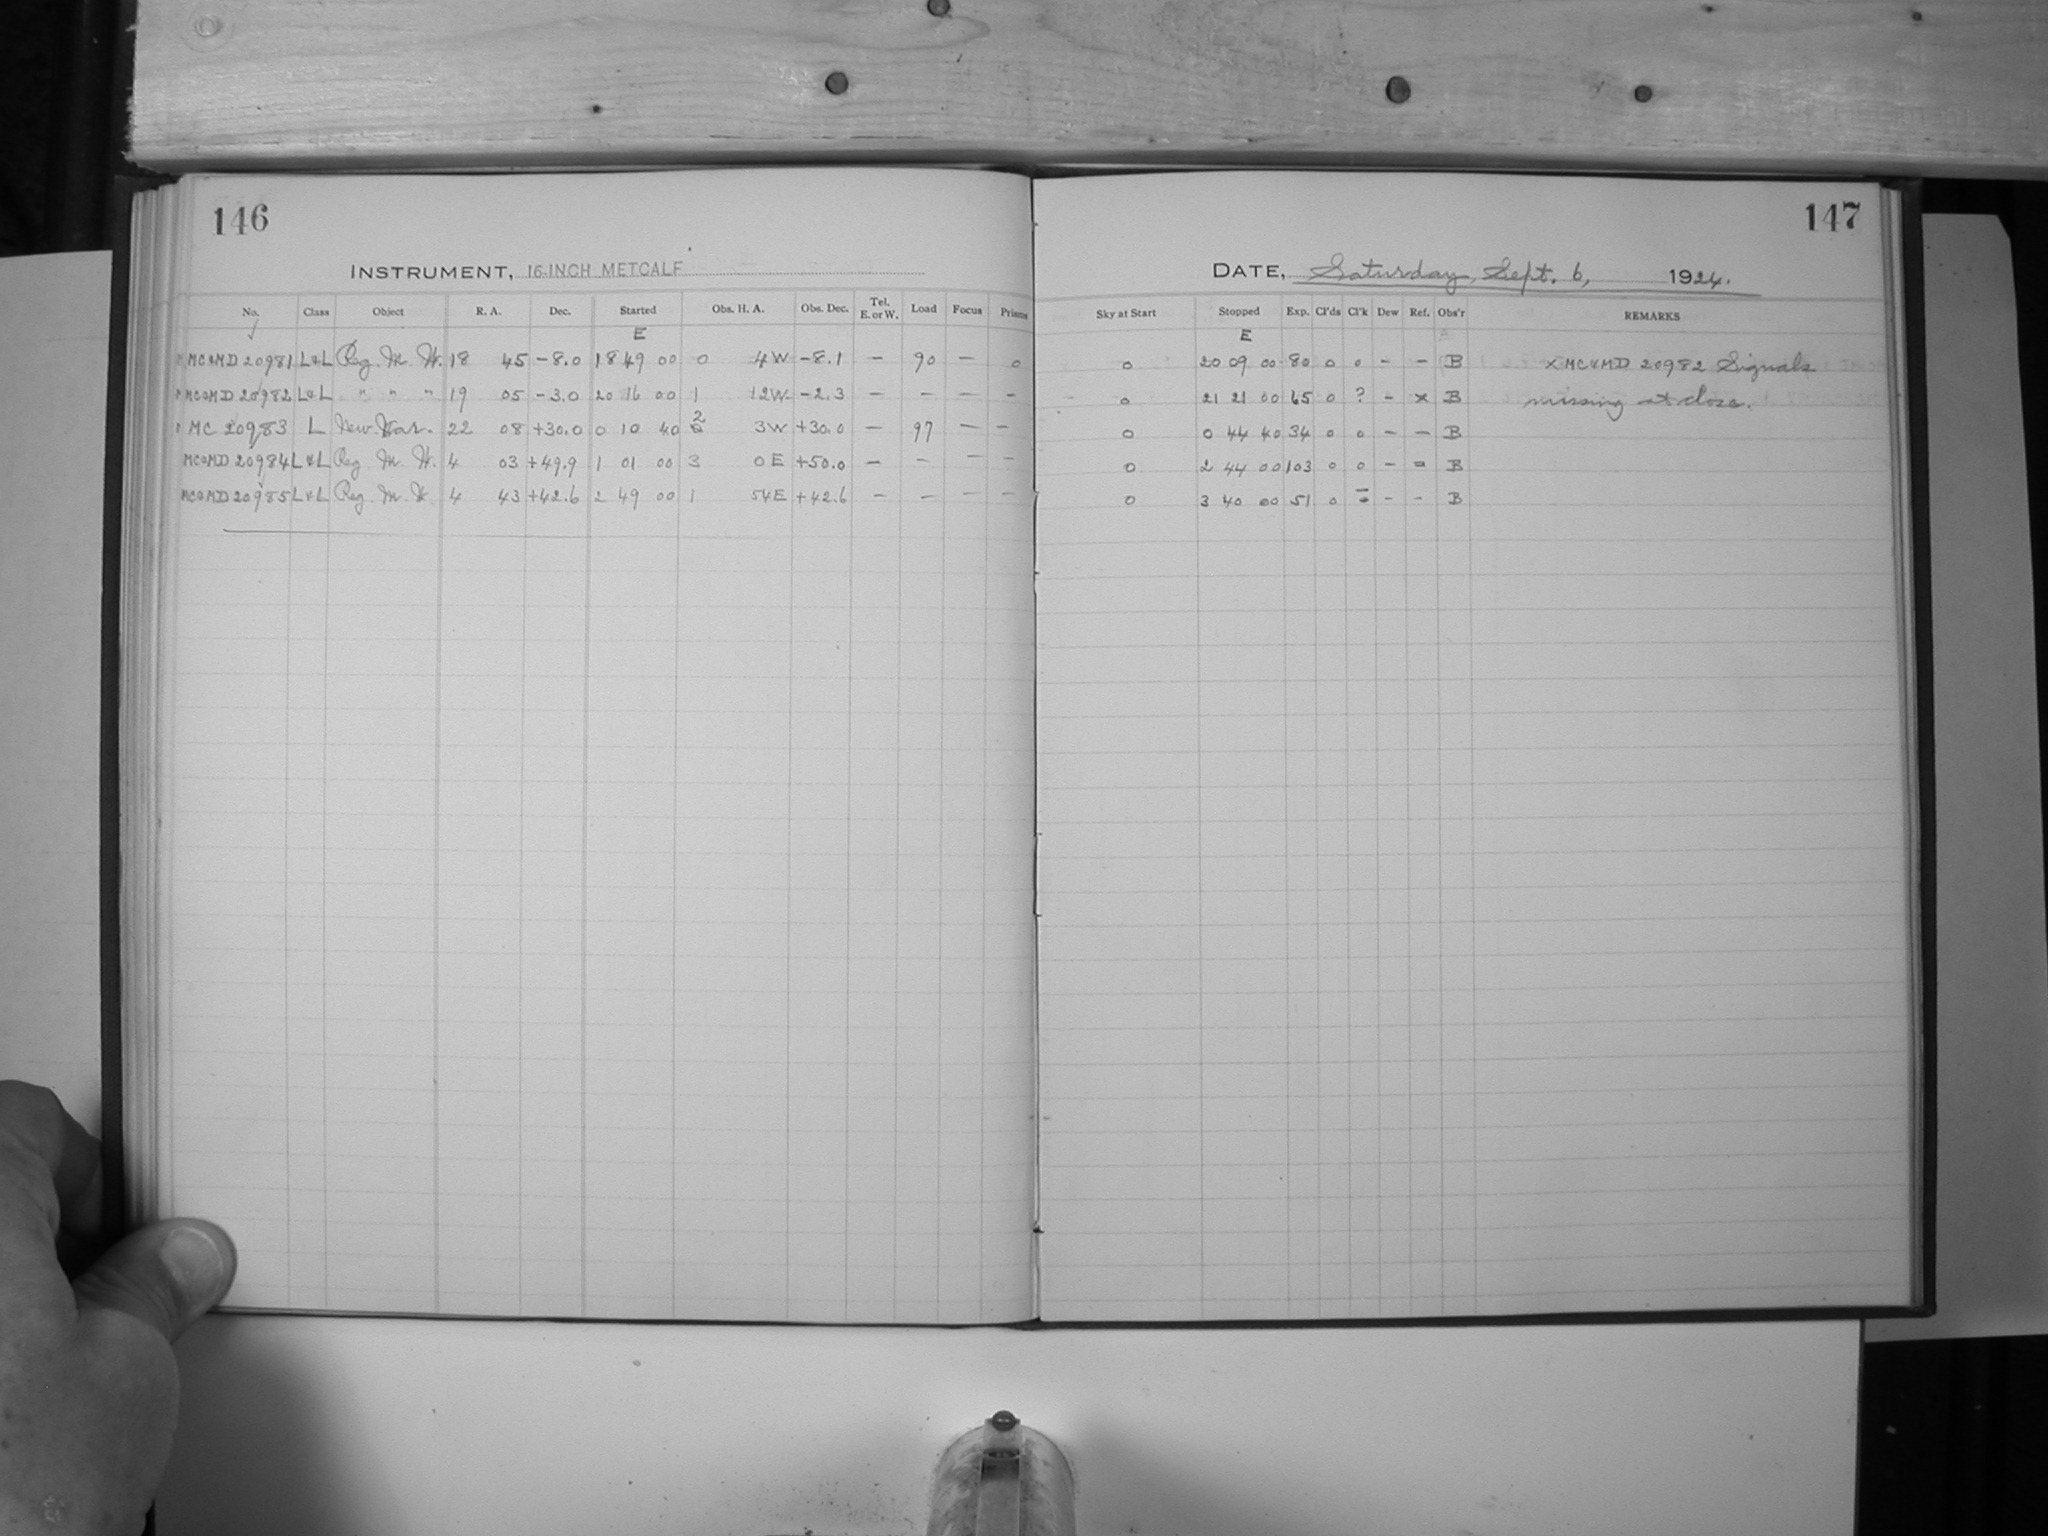 146
INSTRUMENT, 16-INCH METCALF
No. Class Object R. A. Dec. Started Obs. H. A. Obs. Dec. Tel. E. or W. Load Focus Prisms
E
MC&MD 20981 L&L Reg. M. W. 18 45 -8.0 18 49 00 0 4W -8.1 - 90 - 0
MC&MD 20982 L&L " " " 19 05 -3.0 20 16 00 1 12W -2.3 - - - -
MC 20983 L New Var. 22 08 +30.0 0 10 40 2 3W +30.0 - 97 - -
MC&MD 20984 L&L Reg. M. W. 4 03 +49.9 1 01 00 3 0E +50.0 - - - -
MC&MD 20985 L&L Reg. M. W. 4 43 +42.6 2 49 00 1 54E +42.6 - - - -
147
DATE, Saturday, Sept. 6, 1924.
Sky at Start Stopped Exp. Cl'ds Cl'k Dew Ref. Obs'r REMARKS
E
0 20 09 00 80 0 0 - - B X MC&MD 20982 Signals
0 21 21 00 65 0 ? - X B missing at close.
0 0 44 40 34 0 0 - - B
0 2 44 00 103 0 0 - - B
0 3 40 00 51 0 - - B